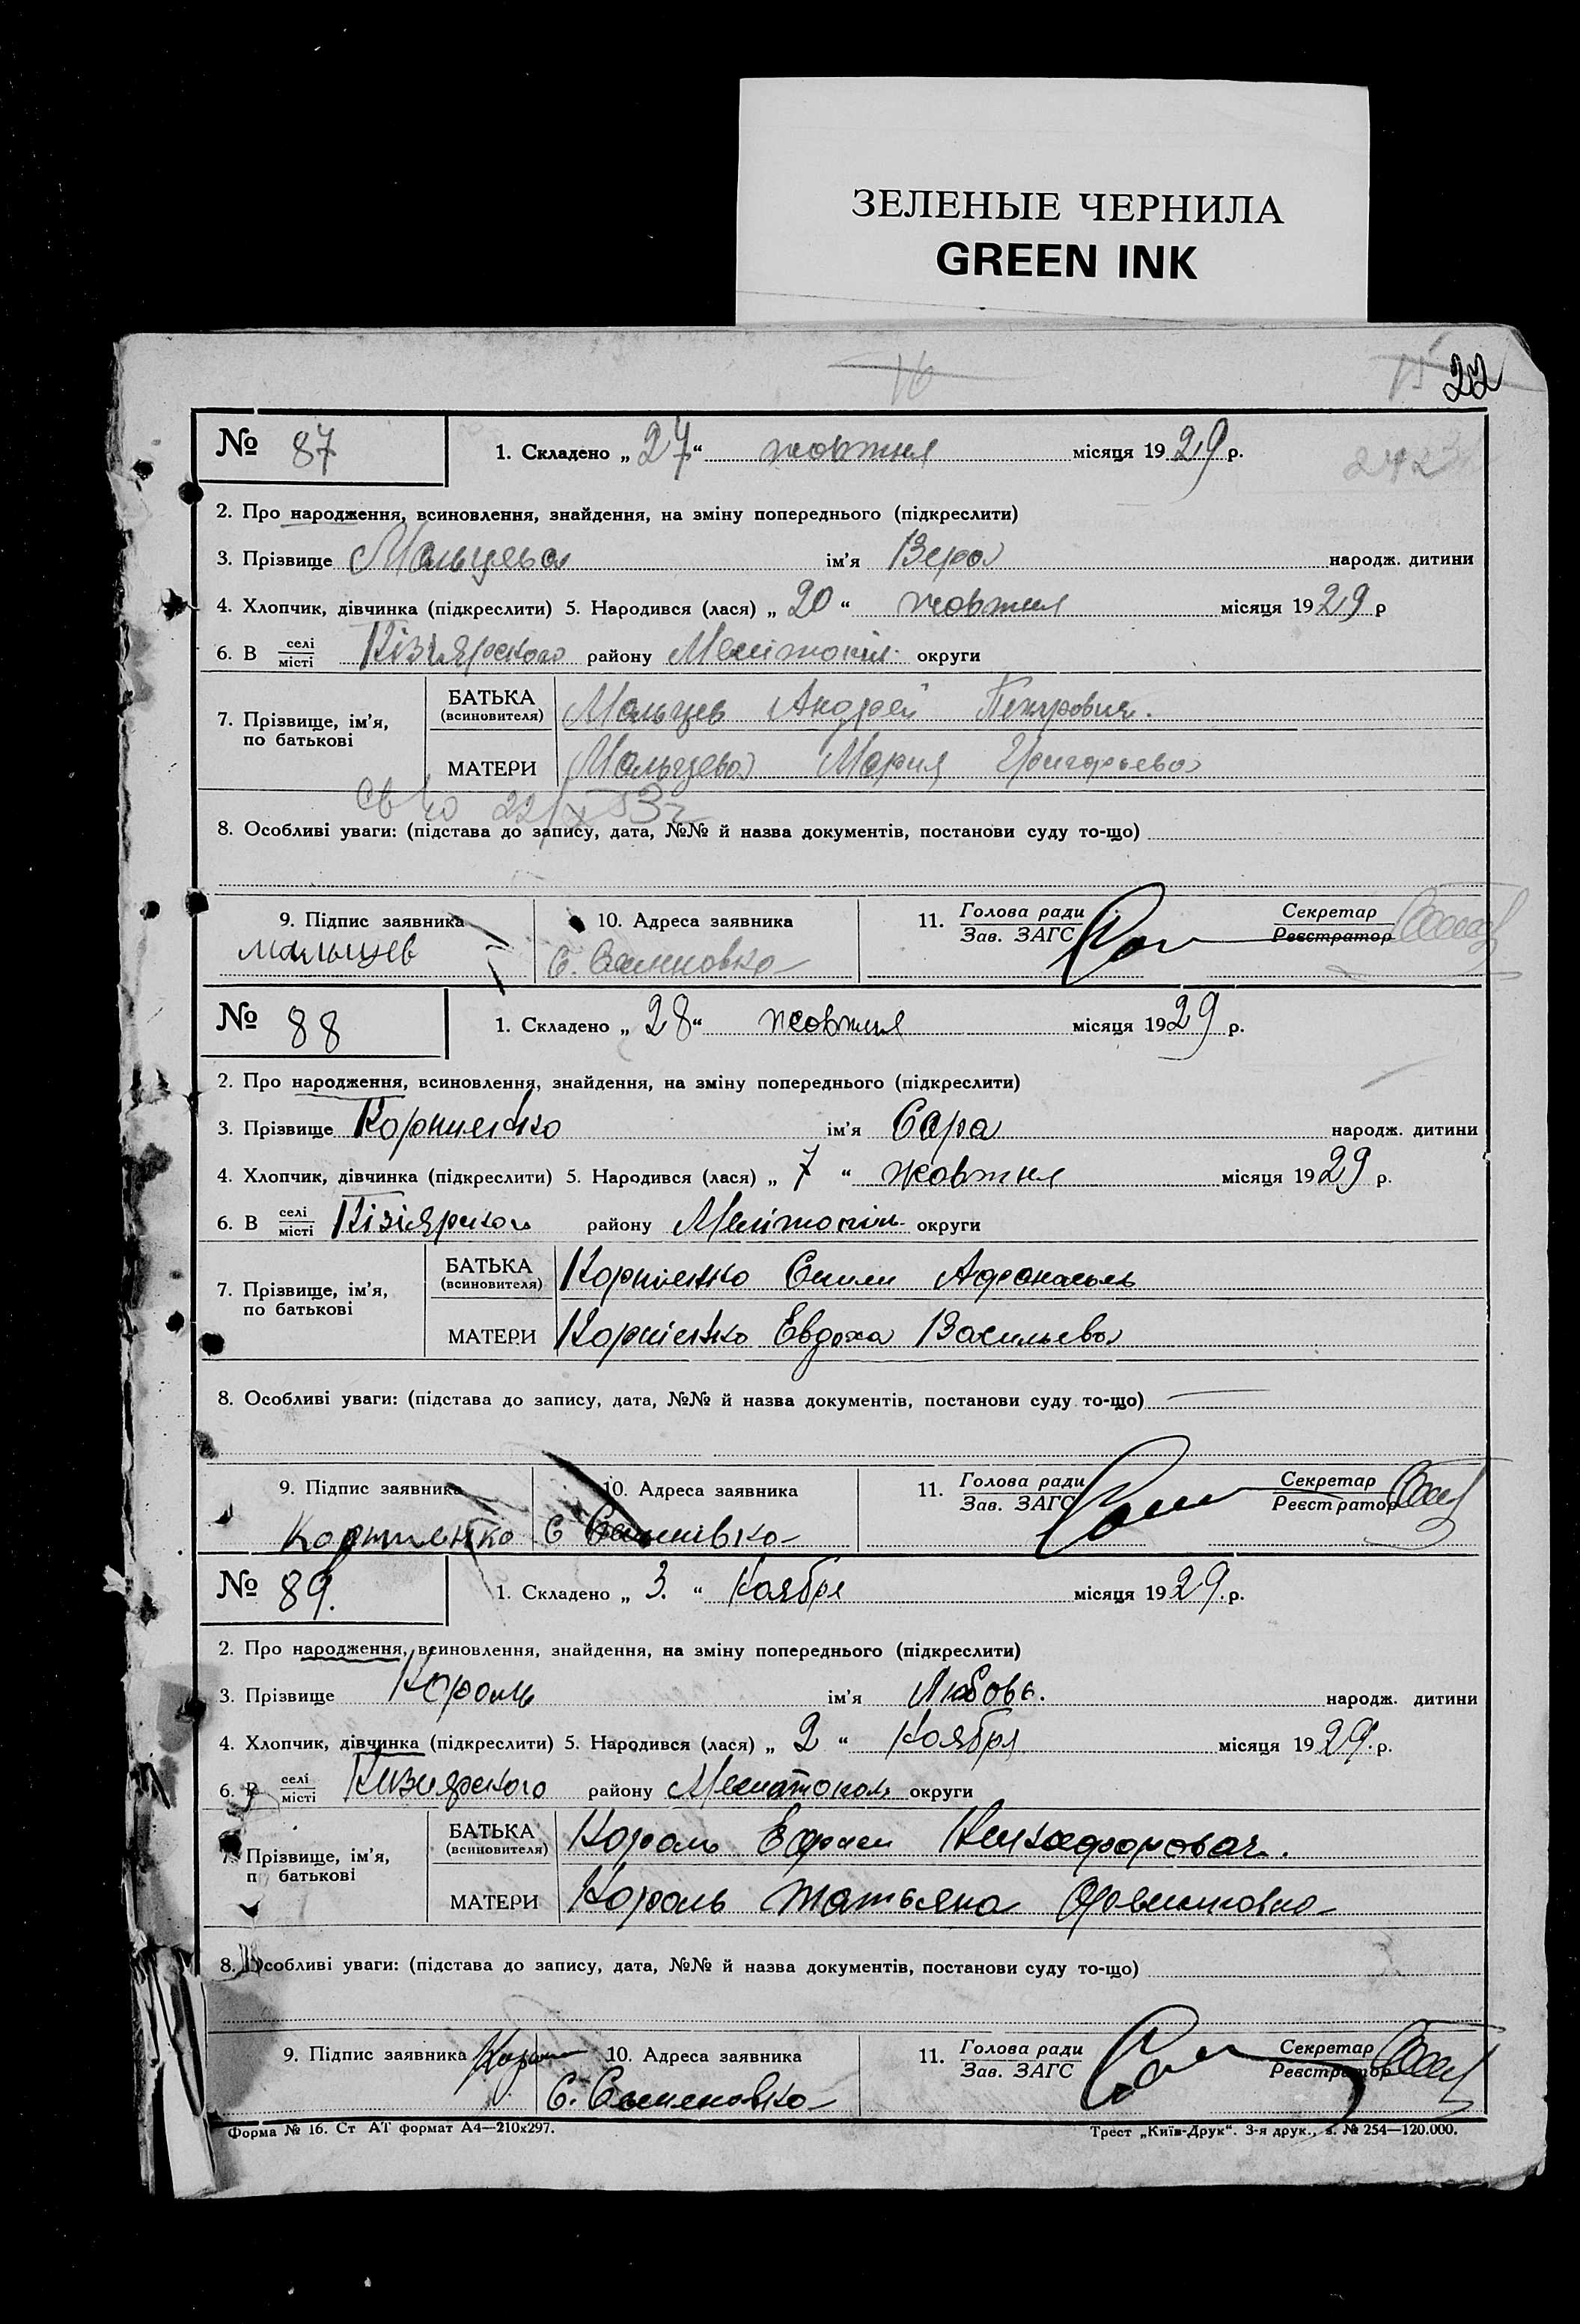 ЗЕЛЕНЫЕ ЧЕРНИЛА
GREEN INK
16
15 22
№ 87 1. Складено „27“ жовтня місяця 1929 р.
2. Про народження, всиновлення, знайдення, на зміну попереднього (підкреслити)
3. Прізвище Мальцева ім'я Вера народж. дитини
4. Хлопчик, дівчинка (підкреслити) 5. Народився (лася) „20“ жовтня місяця 1929 р
6. В селі місті Кізіярського району Мелітопіл. округи
7. Прізвище, ім'я, по батькові
БАТЬКА (всиновителя) Мальцев Андрей Петрович.
МАТЕРИ Мальцева Мария Григорьева
8. Особливі уваги: (підстава до запису, дата, №№ й назва документів, постанови суду то-що)
9. Підпис заявника 10. Адреса заявника 11. Голова ради Зав. ЗАГС Секретар Реєстратор
Мальцев С.
№ 88 1. Складено „28“ жовтня місяця 1929 р.
2. Про народження, всиновлення, знайдення, на зміну попереднього (підкреслити)
3. Прізвище Корниенко ім'я Сара народж. дитини
4. Хлопчик, дівчинка (підкреслити) 5. Народився (лася) „7“ жовтня місяця 1929 р.
6. В селі місті Кізіярского району Мелітопіл. округи
7. Прізвище, ім'я, по батькові
БАТЬКА (всиновителя) Корніенко
МАТЕРИ Корніенко Евдоха Васильева
8. Особливі уваги: (підстава до запису, дата, №№ й назва документів, постанови суду то-що)
9. Підпис заявника 10. Адреса заявника 11. Голова ради Зав. ЗАГС Секретар Реєстратор
Корниенко С
№ 89. 1. Складено „3.“ Ноября місяця 1929. р.
2. Про народження, всиновлення, знайдення, на зміну попереднього (підкреслити)
3. Прізвище Король ім'я Любовь. народж. дитини
4. Хлопчик, дівчинка (підкреслити) 5. Народився (лася) „2“ Ноября місяця 1929. р.
6. В селі місті Кизиярского району Мелитополь округи
7. Прізвище, ім'я, по батькові
БАТЬКА (всиновителя) Король Ефрем Никифорович.
МАТЕРИ Король Татьяна
8. Особливі уваги: (підстава до запису, дата, №№ й назва документів, постанови суду то-що)
9. Підпис заявника Король 10. Адреса заявника 11. Голова ради Зав. ЗАГС Секретар Реєстратор
С.
Форма № 16. Ст АТ формат А4—210х297. Трест „Київ-Друк“. 3-я друк., з. № 254—120.000.